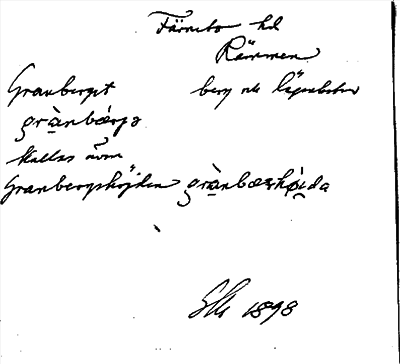 Färnebo hd
Rämmen
Granberget berg och lägenheter
grànbærjə
Kallas även
Granbergshöjden grànbærshöjda
1898